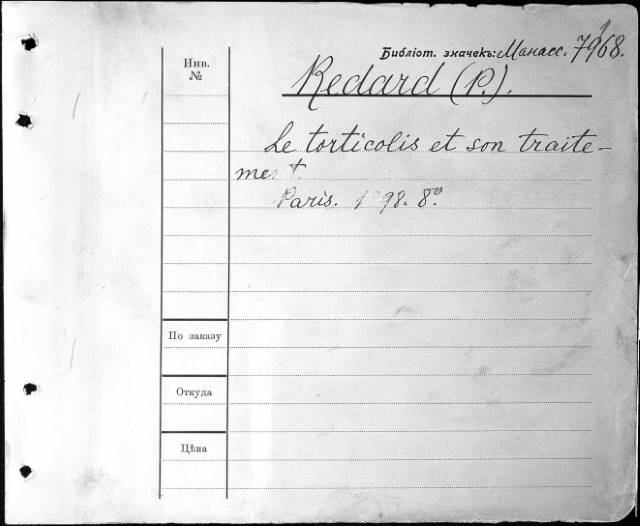 Библіот. значекъ: Манасс. 7968.
Инв.
№
Redard (P.).
Le torticolis et son traite-
ment.
Paris. 1898. 8º.
По заказу
Откуда
Цѣна